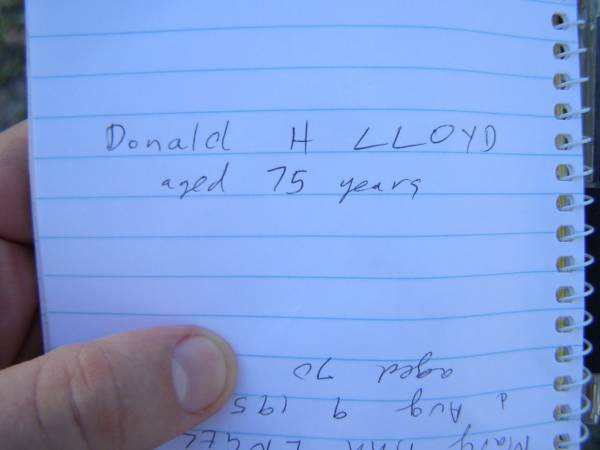 Donald H LLOYD
aged 75 years
Mary Ann
d Aug 9 195
aged 70